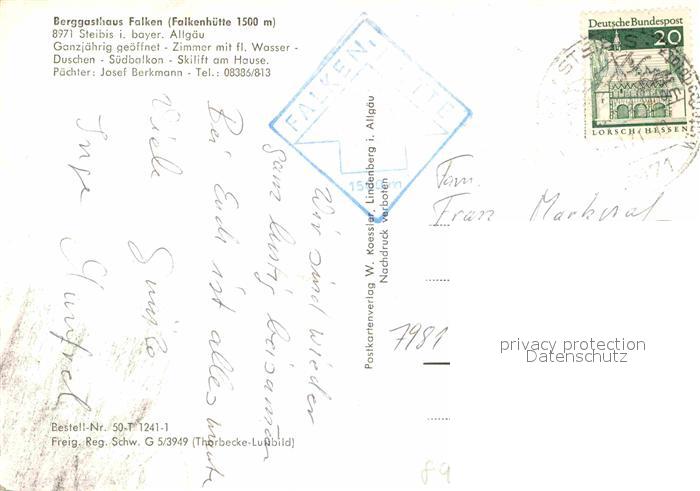 Berggasthaus Falken (Falkenhütte 1500 m)
8971 Steibis i. bayer. Allgäu
Ganzjährig geöffnet - Zimmer mit fl. Wasser -
Duschen - Südbalkon - Skilift am Hause.
Pächter: Josef Berkmann - Tel.: 08386/813
FALKEN
1500 m
Deutsche Bundespost
20
LORSCH/HESSEN
Wir sind wieder
ganz lustig beisamen
Bei Euch ist alles
Viele Grüße
Inge Manfred
Postkartenverlag W. Koessler, Lindenberg i. Allgäu
Nachdruck verboten
Fam.
Franz
7981
privacy protection
Datenschutz
Bestell-Nr. 50-T 1241-1
Freig. Reg. Schw. G 5/3949 (Thorbecke-Luftbild)
89